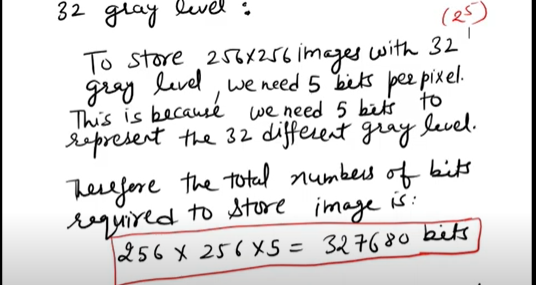 32 gray level :
(2⁵)
To store 256x256 images with 32
gray level, we need 5 bits per pixel.
This is because we need 5 bits to
represent the 32 different gray level.
Therefore the total numbers of bits
required to store image is:
256 x 256 x 5 = 327680 bits